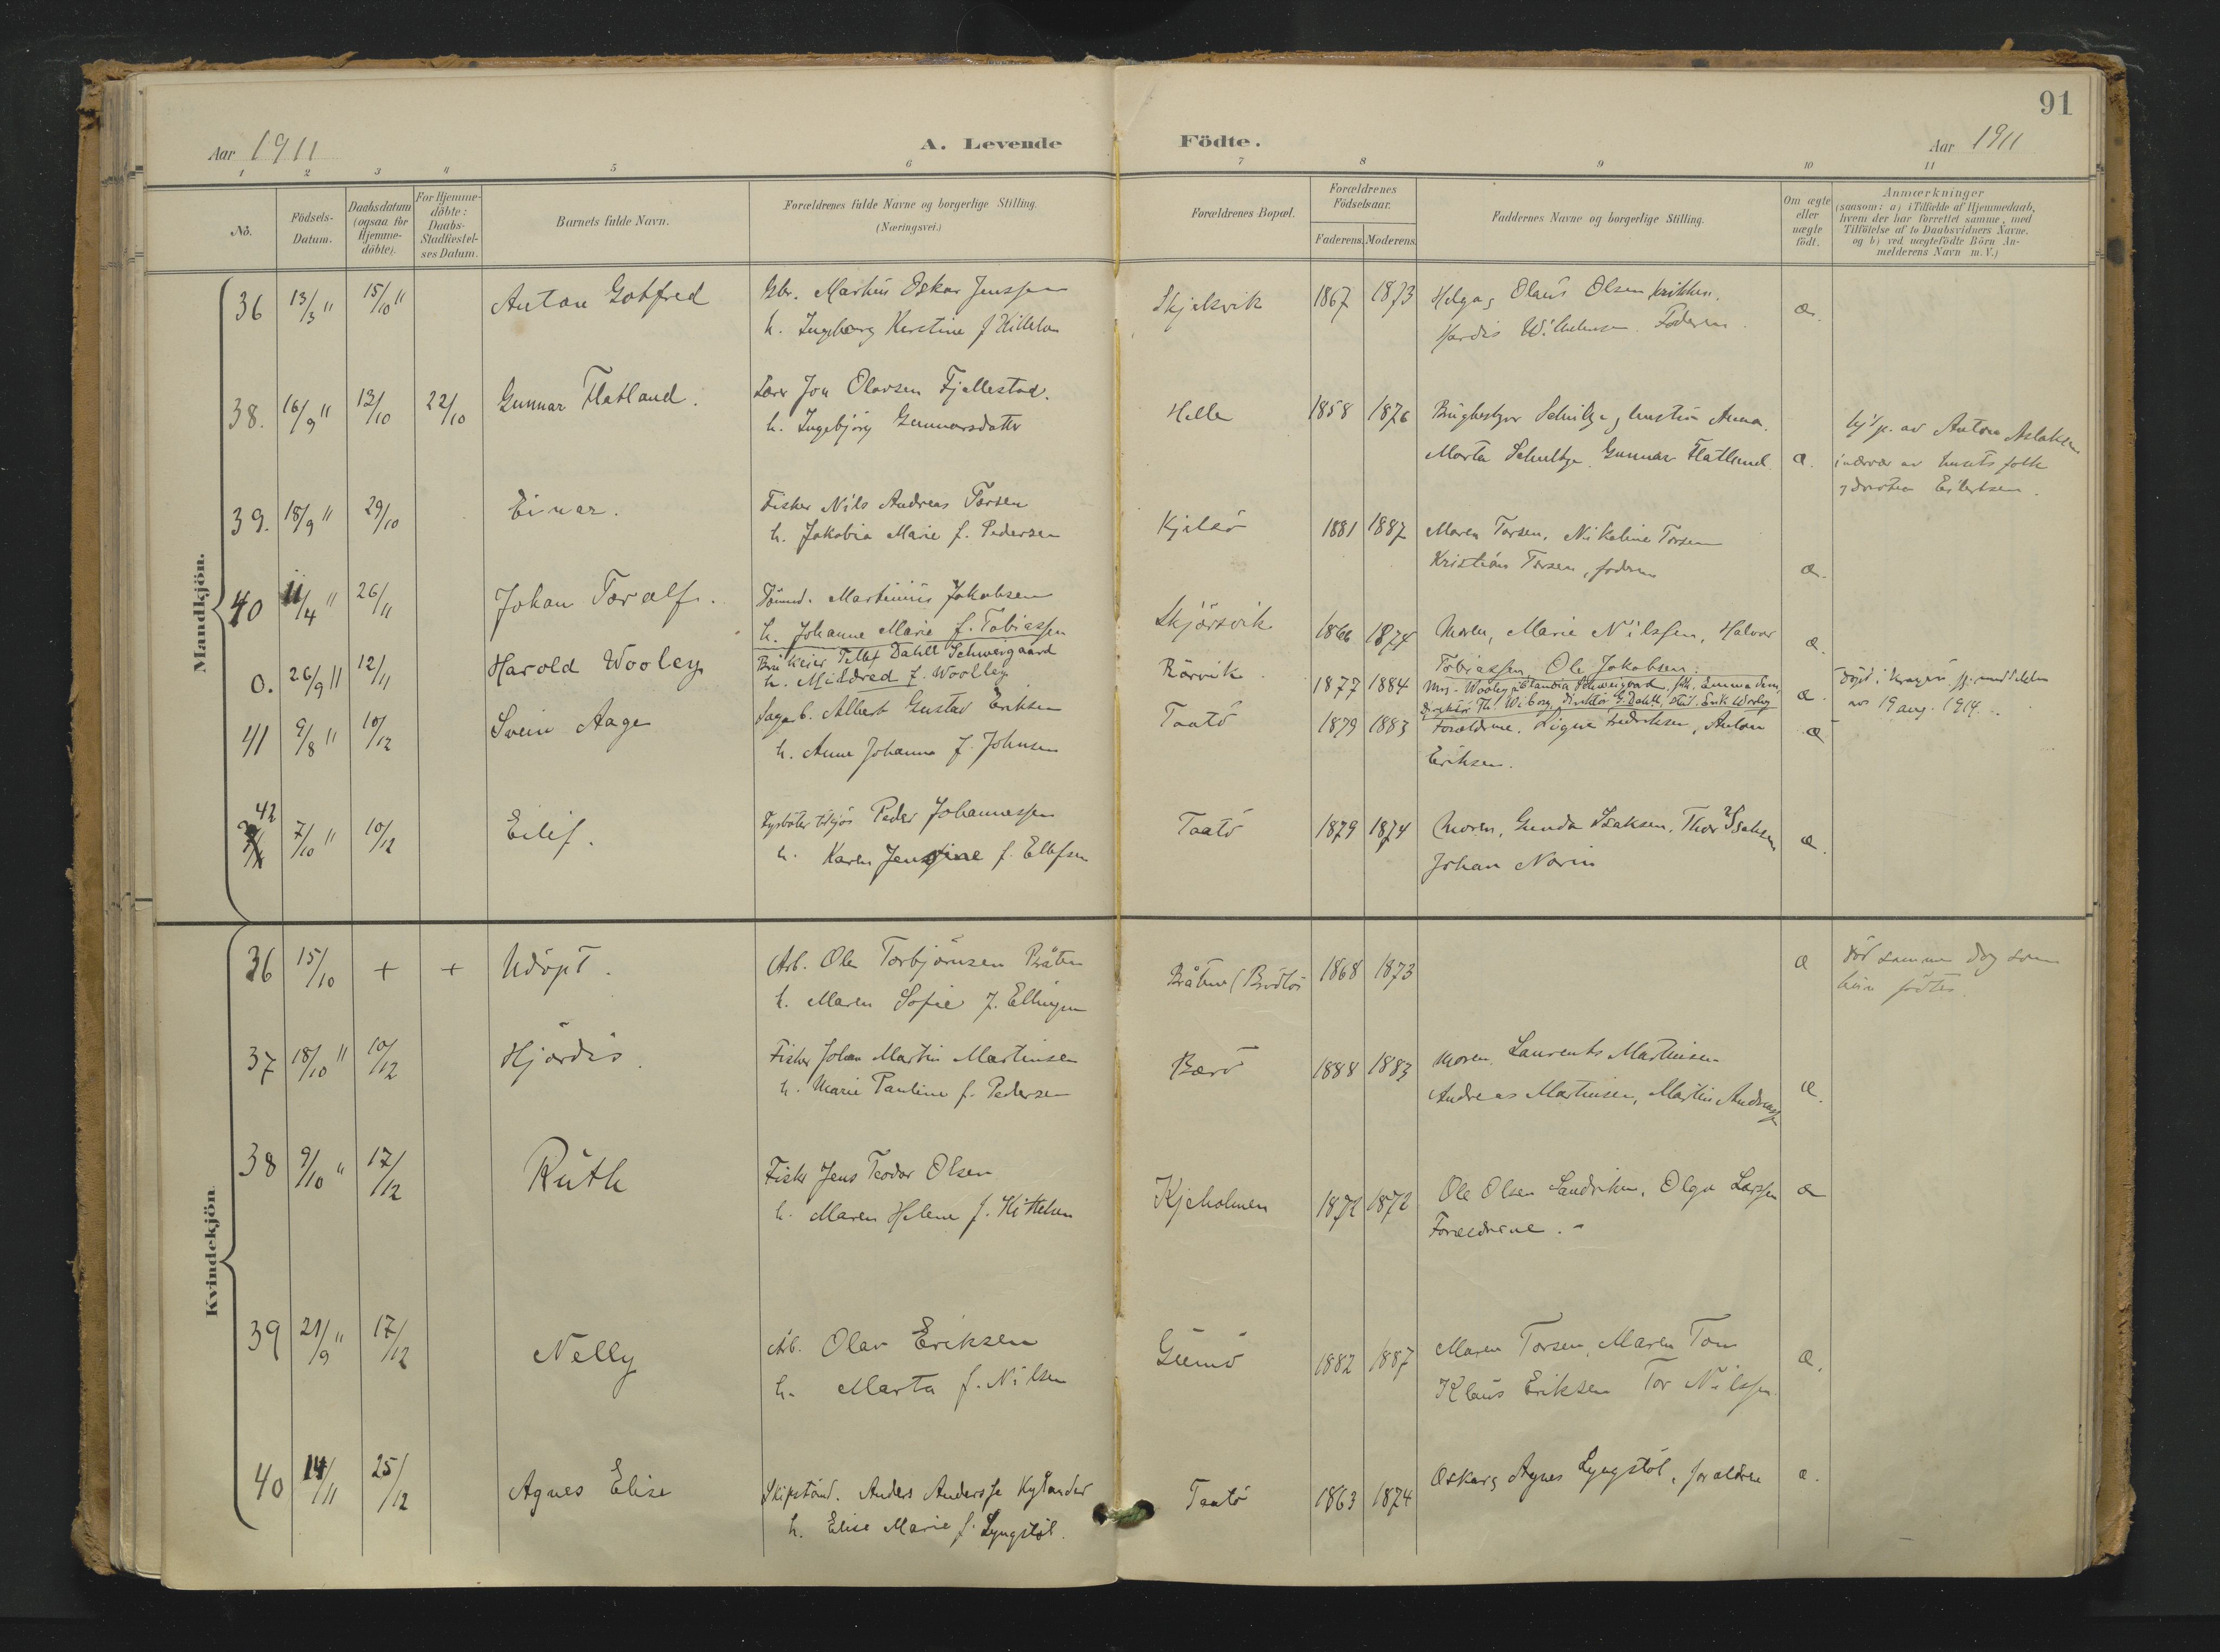 91
Aar 1911
A. Levende Födte.
Aar 1911
1 2 3 4 5 6 7 8 9 10 11
No.
Födsels-Datum.
Daabsdatum (ogsaa for Hjemme-döbte).
For Hjemme-döbte: Daabs-Stadfæstel-ses Datum.
Barnets fulde Navn.
Forældrenes fulde Navne og borgerlige Stilling.
(Næringsvei.)
Forældrenes Bopæl.
Forældrenes Födselsaar.
Faderens. Moderens.
Faddernes Navne og borgerlige Stilling.
Om ægte eller uægte födt.
Anmærkninger
(saasom: a) i Tilfælde af Hjemmedaab,
hvem der har forrettet samme, med
Tilföielse af to Daabsvidners Navne.
og b) ved uægtefödte Börn An-
melderens Navn m.V.)
Mandkjön.
36 13/3 " 15/10 " Anton Gotfred Gbr. Markus Oskar Jenssen Skjelsvik 1867 1873 Helga og Olaus Olsen æ.
h. Ingeborg Kerstine f Kittelsen
Hardis Wilhelmsen. Faderen.
38. 16/9 " 13/10 22/10 Gunnar Flatland. Lærer Jon Olavsen Fjellestad. Helle 1858 1876 Brugbestyrer Schultze og hustru Anna.
h. Ingebjörg Gunnarsdatter
Marta Schultze. Gunnar Flatland. æ.
hj. av Anton Aslaksen
i nærvær av husets folk
Eilertsen.
39. 18/9 " 29/10 Einar. Fisker Nils Andreas Torsen Kjelsö 1881 1887 Maren Torsen, Nikoline Torsen
h. Jakobia Marie f. Pedersen
Kristian Torsen, faderen æ.
40 11/4 " 26/11 Johan Toralf. Martinius Jakobsen Skjörsvik 1866 1874 Moren, Marie Nilssen, Halvor æ.
h. Johanne Marie f. Tobiassen
Tobiassen, Ole Jakobsen.
0. 26/9 11 12/11 Harold Wooley Tellef Dahll Schweigaard Rörvik 1877 1884 Mrs. Wooley, Schweigaard, frk. Emma
h. Mildred f. Woolley
Direktör Th. Wiborg, Direktör G. Dahll, stud. Erik Worley æ.
av 19 aug. 1914.
41 9/8 " 10/12 Svein Aage Sagarb. Albert Gustav Eriksen Taatö 1879 1883 Forældrene. Signe Fredriksen, Anton æ
h. Anne Johanna f. Johnsen
Eriksen.
42 7/10 " 10/12 Eilif. Peder Johannessen Taatö 1879 1874 Moren, Gunda Isaksen, Thor Isaksen æ.
h. Karen Jensine f. Ellefsen
Johan Norin
Kvindekjön
36 15/10 + + Udöpt. Arb. Ole Torbjörnsen Bråten 1868 1873 æ död samme dag som
h. Maren Sofie f. Ellingsen
födtes.
37 18/10 " 10/12 Hjördis. Fisker Johan Martin Martinsen Bærö 1888 1883 Moren. Laurents Martinsen
h. Marie Pauline f. Pedersen
Andreas Martinsen, Martin Andreassen æ.
38 9/10 " 17/12 Ruth Fisker Jens Teodor Olsen Kjeholmen 1872 1872 Ole Olsen Sandviken, Olga Larssen æ
h. Maren Helene f. Kittelsen
Forældrene.
39 21/9 " 17/12 Nelly Arb. Olav Eriksen Gumö 1882 1887 Maren Torsen, Maren Tom
h. Marta f. Nilsen æ.
Klaus Eriksen Tor Nilssen.
40 14/11 25/12 Agnes Elise Skipstömr. Anders Anderssen Kylander Taatö 1863 1874 Oskar og Agnes Lyngstöl, forældre æ.
h. Elise Marie f. Lyngstöl.